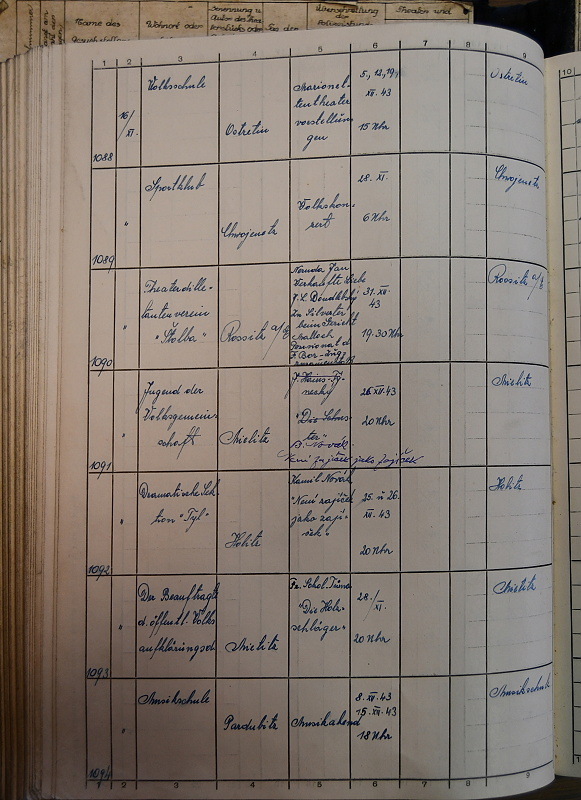 Name des
Wohnort oder
Theater und
1 2 3 4 5 6 7 8 9
10
1088
16/
XI.
Volksschule
Ostretin
Marionet-
tentheater
vorstellun-
gen
5., 12., 19.
XII. 43
15 Uhr
Ostretin
1089
"
Sportklub
Chwojenetz
Volkskon-
zert
28. XI.
6 Uhr
Chwojenetz
1090
"
Theaterdille-
tantenverein
"Štolba"
Rossitz a/E
Verkaufte Liebe
Zu Silvester
beim Gericht
31. XII.
43
19.30 Uhr
Rossitz a/E
1091
"
Jugend der
Volksgemein-
schaft
Mielitz
"Die
A. Novák
Není zajíček jako zajíček
26 XII. 43
20 Uhr
Mielitz
1092
"
Dramatische Sek-
tion "Tyl"
Holitz
Kamil Novák
"Není zajíček
jako zají-
ček"
25. u 26.
XII. 43
20 Uhr
Holitz
1093
"
Der Beauftragte
d. öffentl. Volks
aufklärungsd.
Mielitz
"Die Holz-
schläger"
28./
XI.
20 Uhr
Mielitz
1094
Musikschule
Pardubitz
Musikabend
8. XII. 43
15. XII. 43
18 Uhr
Musikschule
1 2 3 4 5 6 7 8 9